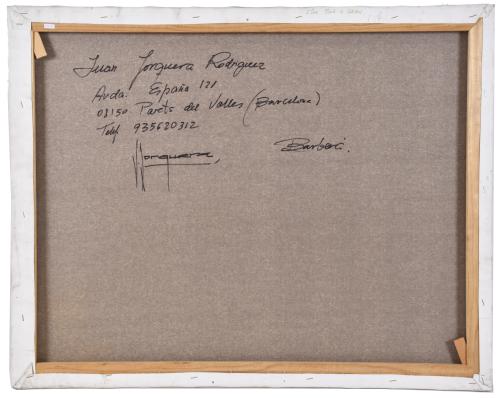 Juan Jorquera Rodriguez
Avda. España 121
08150 Parets del Valles (Barcelona)
Telef. 935620312
Jorquera, Barberá.